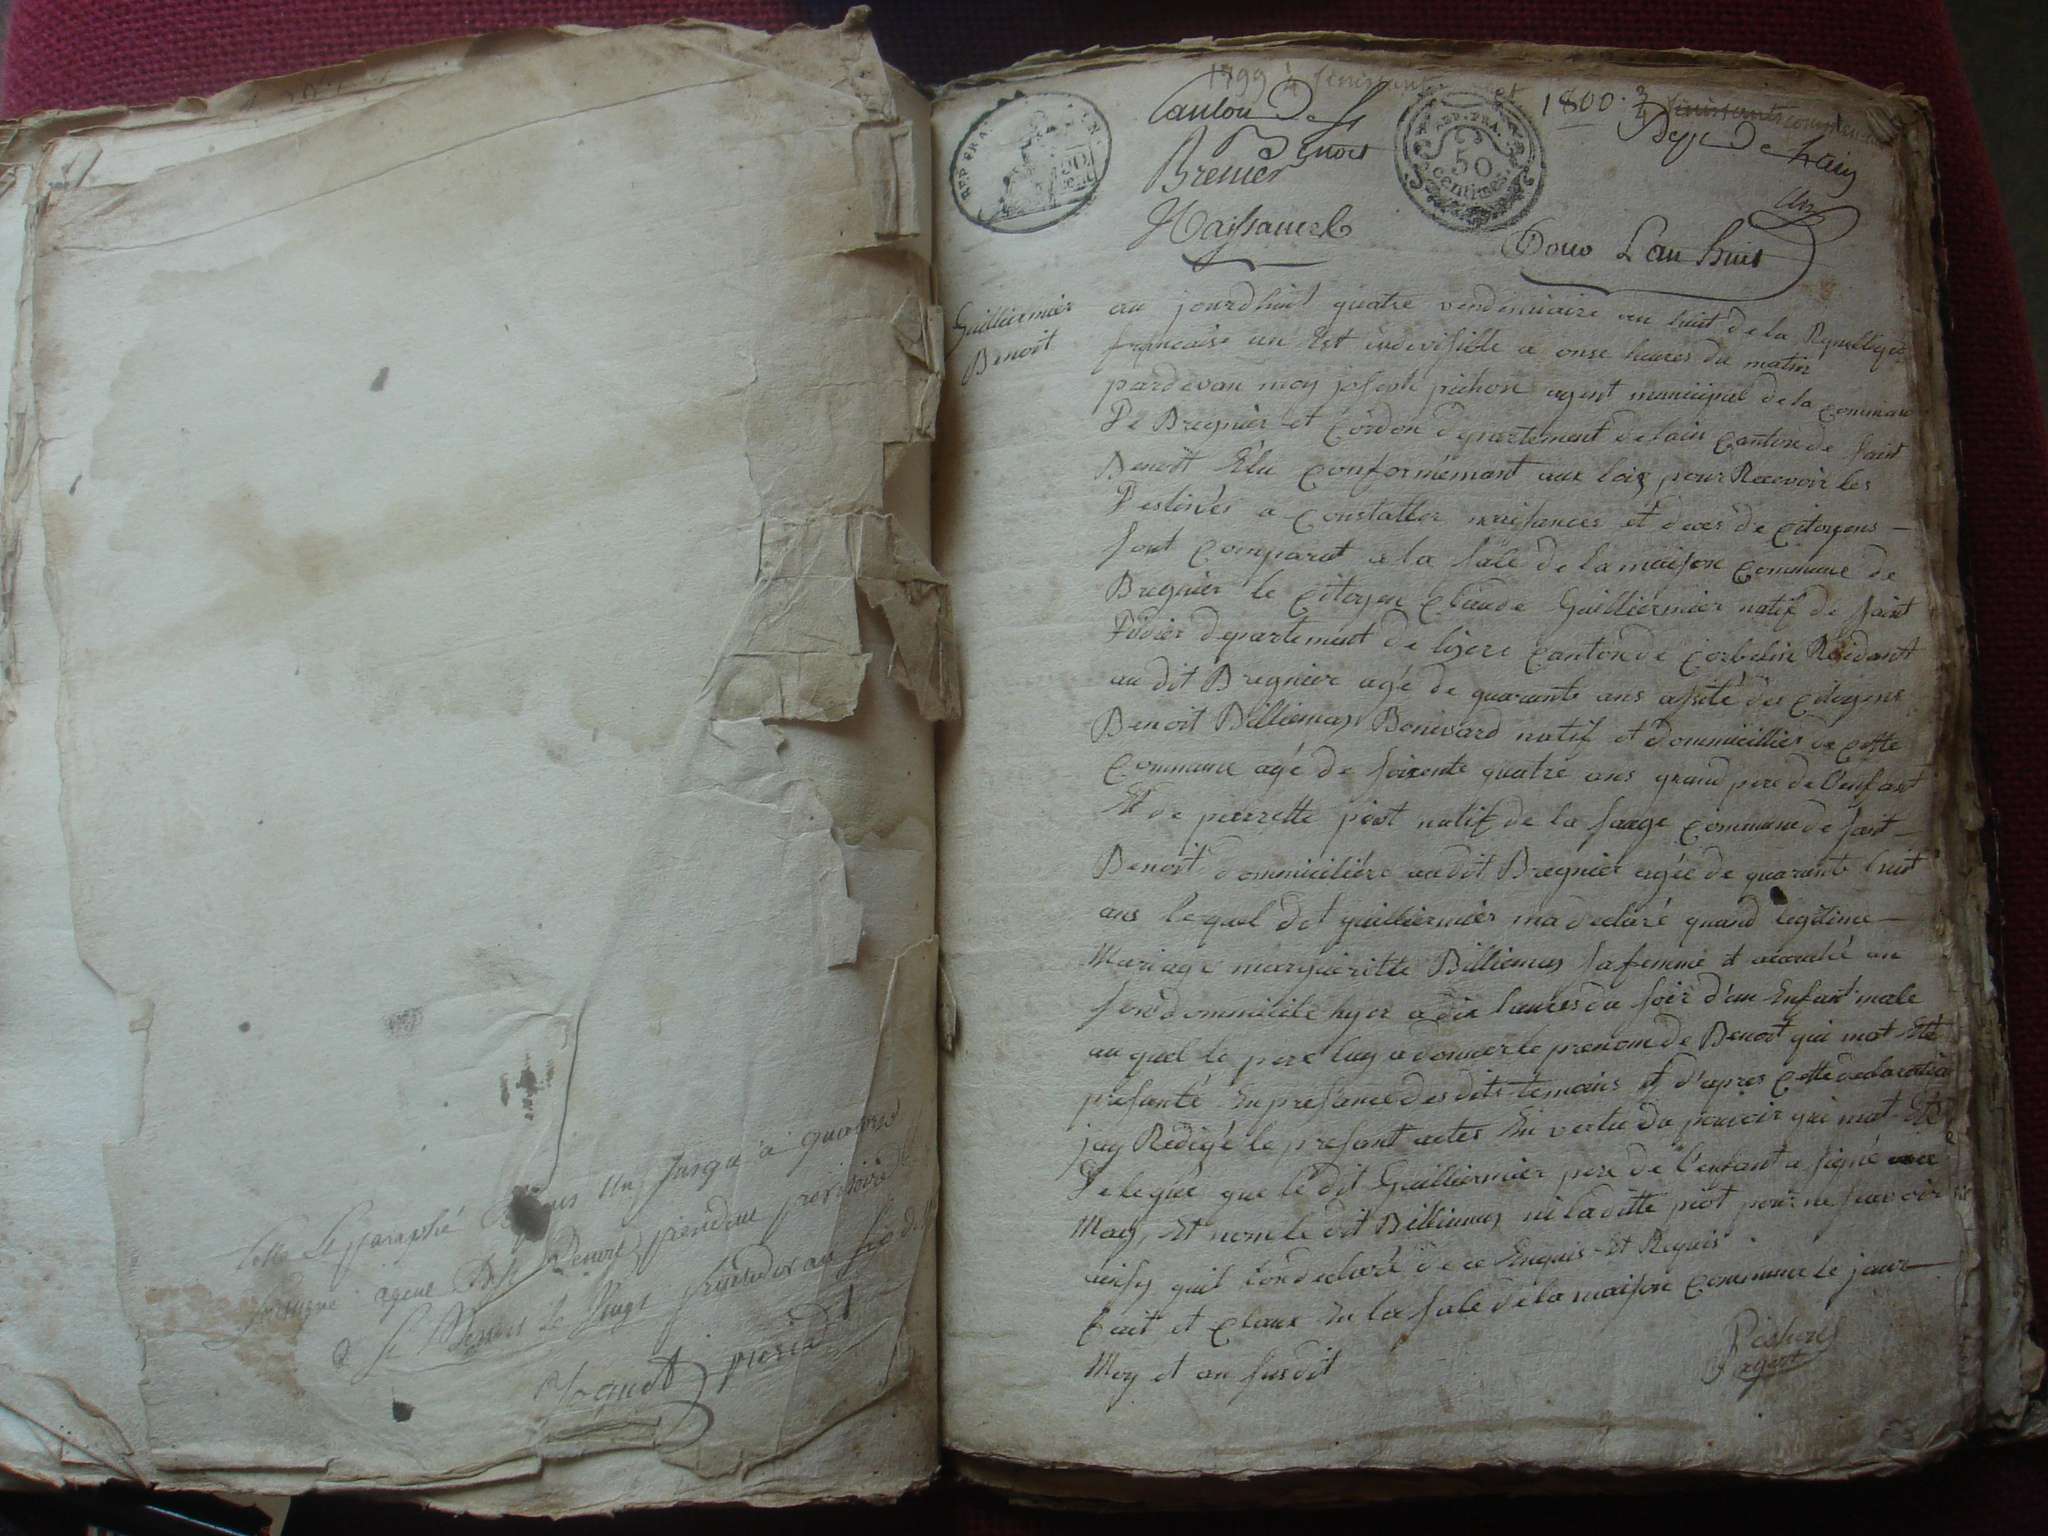 Cotte et paraphé
jusqu'à
agent
St Benoit
le vingt
president
1799 1/4
1800. 3/4
Canton de St
Benoit
Brenier
REP. FRA.
REP. FRA.
50
centimes
Dept De Lain
Naissances
Pour L'an huit
Guilliermier
Benoit
au jourdhuit quatre vendemiaire an huit de la Republique
francaise un Est indevisible a onse heures du matin
pardevan moy joseph pichon agent municipal de la Commune
De Bregnier et Cordon departement de lain Canton de saint
Benoit Elu Conformémant aux loix pour Recevoir les
Destinés a Constatter naisances et deces de Citoyens
sont Comparut a la sale de la maison Commune de
Bregnier le Citoyen Claude Guilliermier natif de saint
Didier departement de lizere Canton de Corbelin Residant
au dit Bregnier agé de quarante ans asisté des Citoyens
Benoit Billiemas Bonivard natif et dommicillier de Cette
Commune agé de soixente quatre ans grand pere de l'enfant
Et de pierrette piot natif de la sauge Commune de saint
Benoit dommiciliére au dit Bregnier agée de quarante huit
ans lequel dit guilliermier ma declaré quand legitime
Mariage margueritte Billiemas sa femme et acouché en
son dommicile hyer a dix heures du soir d'un Enfant male
au quel le pere luy a donner le prenom de Benoit qui mat Eté
presanté En presance des dits temoins et d'apres Cette declaration
jay Redigé le presant actes En vertu du pouvoir qui mat Eté
Delegué que le dit Guilliermier pere de l'enfant a signé avec
Moy, Et non le dit Billiemas ni la ditte piot pour ne scavoir
ainsy quil londeclaré de ce Enquis Et Requis
fait et Claux En la sale de la maison Commune le jour
Moy et an susdit
Pichon
agent